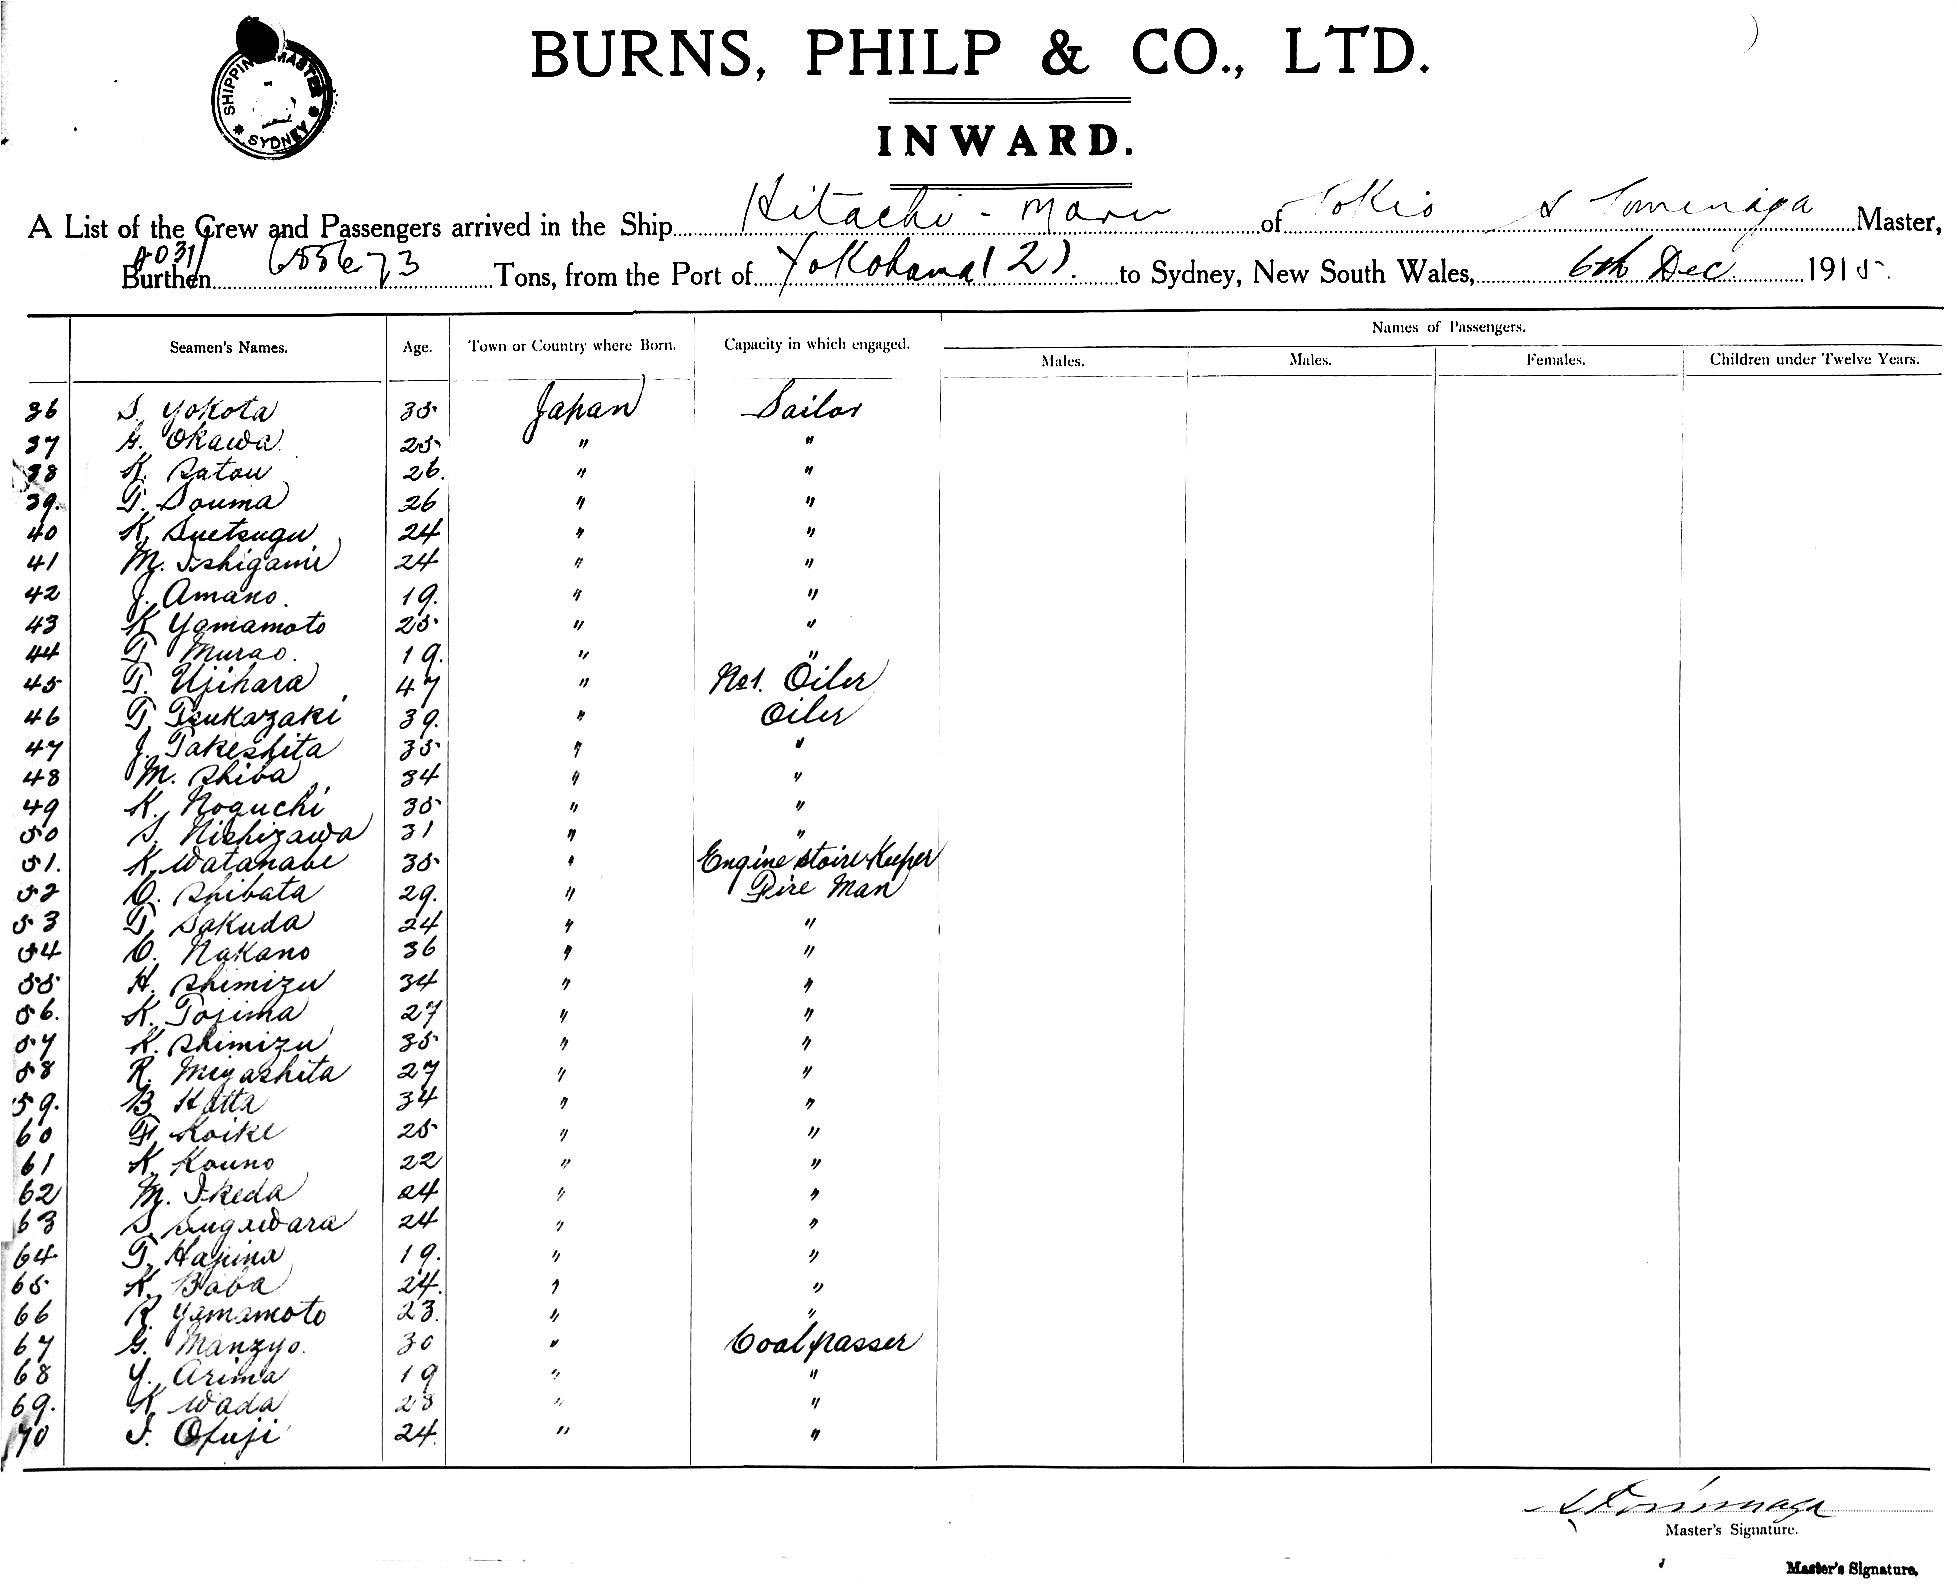 SHIPPING MASTER
* SYDNEY *
BURNS, PHILP & CO., LTD.
INWARD.
A List of the Crew and Passengers arrived in the Ship Hitachi-Maru of Tokio S Tominaga Master,
Burthen 6556.73 Tons, from the Port of Yokohama (2) to Sydney, New South Wales, 6th Dec 1915.
Names of Passengers.
Seamen's Names. Age. Town or Country where Born. Capacity in which engaged. Males. Males. Females. Children under Twelve Years.
36 S. Yokota 35 Japan Sailor
37 G. Okawa 25 " "
38 K. Satou 26. " "
39. T. Souma 26 " "
40 K. Suetsugu 24 " "
41 M. Ishigami 24 " "
42 J. Amano. 19. " "
43 K Yamamoto 25 " "
44 T Murao. 19. " "
45 T. Ujihara 47 " No1. Oiler
46 T. Tsukazaki 39. " Oiler
47 J. Takeshita 35 " "
48 M. Shiba 34 " "
49 K. Noguchi 35 " "
50 S. Nishizawa 31 " "
51. K. Watanabe 35 " Engine Stoire Keeper
52 O. Shibata 29. " Fire Man
53 T. Sakuda 24 " "
54 C. Nakano 36 " "
55 H. Shimizu 34 " "
56. K. Tojima 27 " "
57 K. Shimizu 35 " "
58 R. Miyashita 27 " "
59. B. Hatta 34 " "
60 F. Koike 25 " "
61 K. Kouno 22 " "
62 M. Ikeda 24 " "
63 S. Sugawara 24 " "
64 T. 19. " "
65 K. Baba 24. " "
66 R. Yamamoto 23. " "
67 G. Manzyo. 30 " Coal passer
68 Y. Arima 19 " "
69. K. Wada 28 " "
70 I. Ofuji 24. " "
S Tominaga
Master's Signature.
Master's Signature.